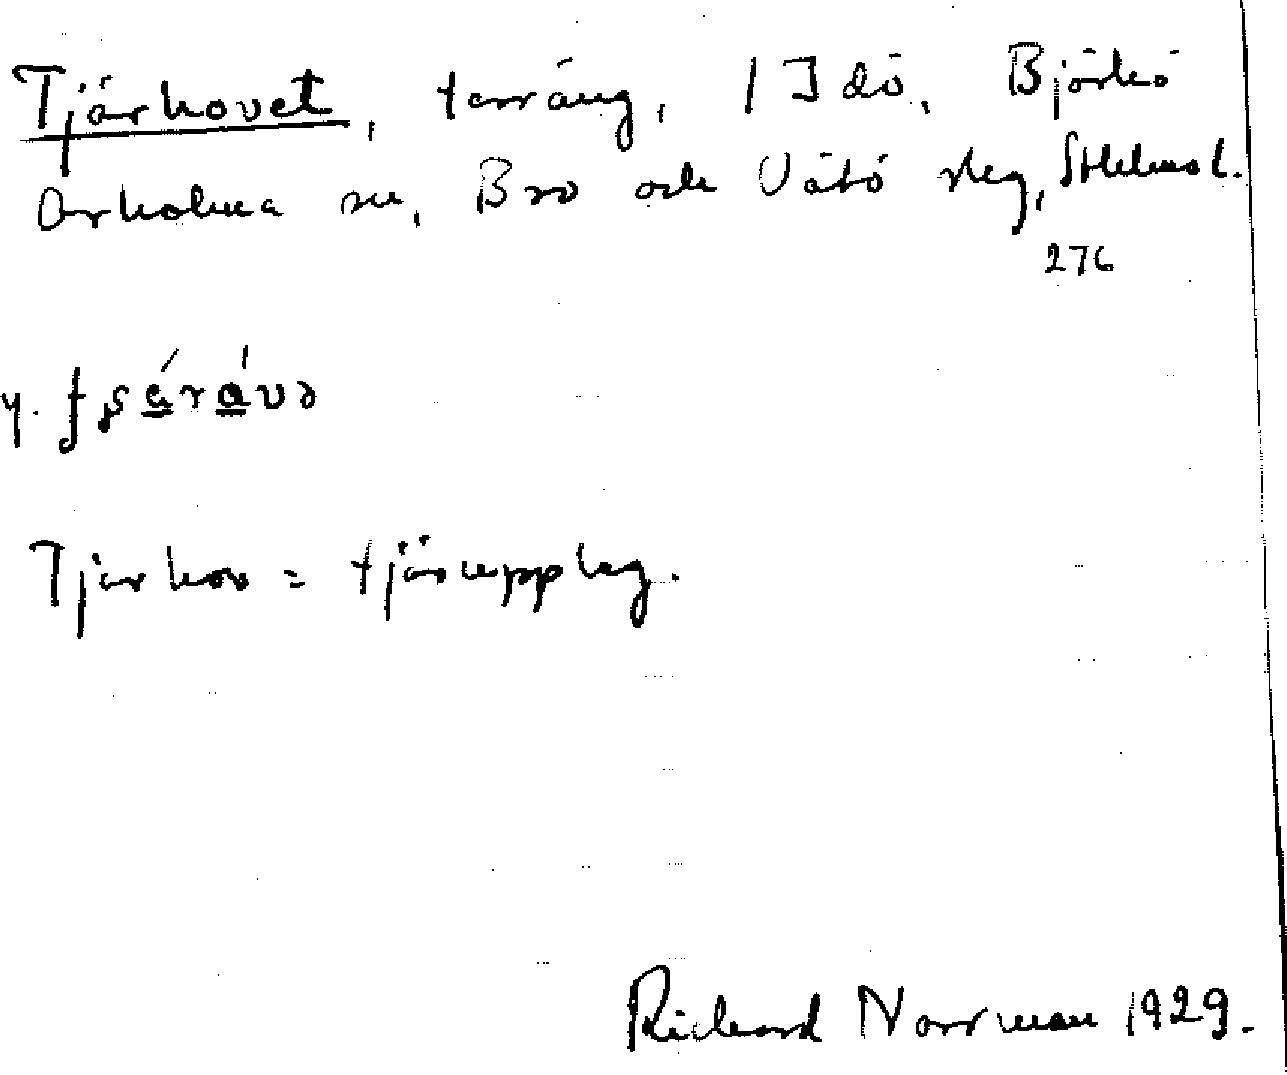 Tjärhovet, terräng, / Idö, Björkö
Arholma sn, Bro och Vätö skg, Sthlms l.
276
Tjärhov = tjärupplag.
Richard Norrman 1929.